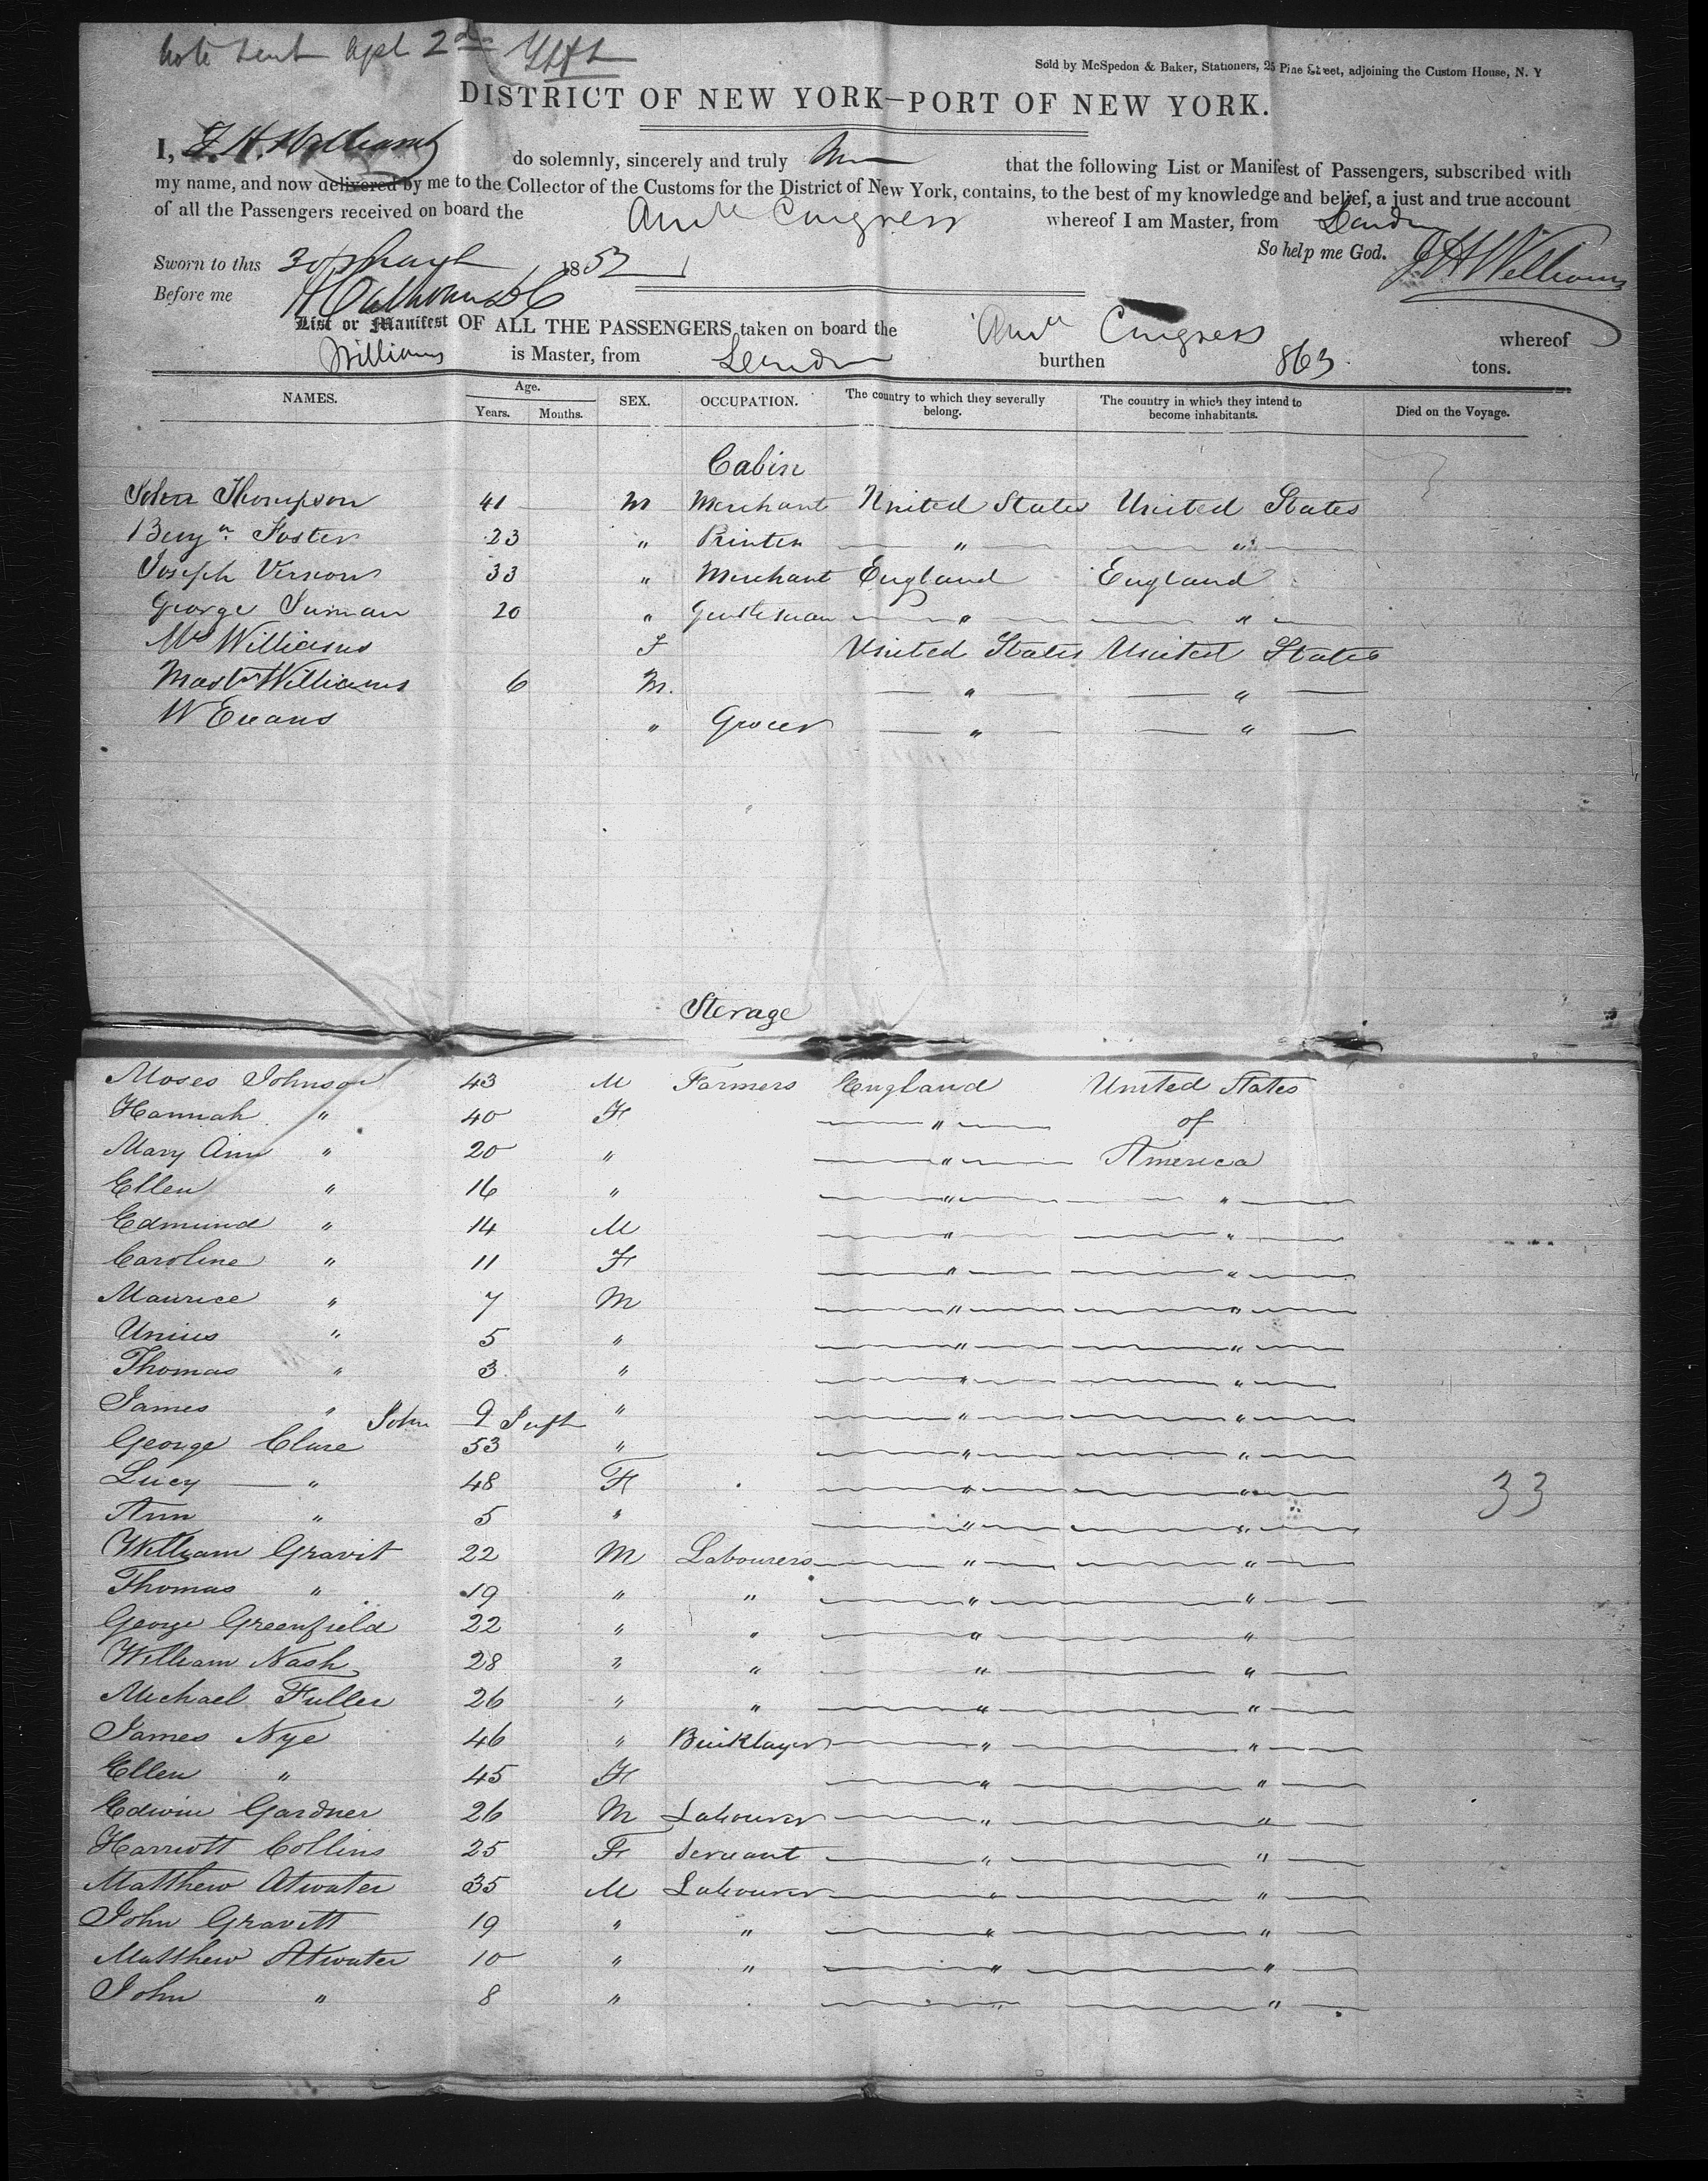 Note sent Apl 2d
Sold by McSpedon & Baker, Stationers, 25 Pine Street, adjoining the Custom House, N. Y
DISTRICT OF NEW YORK—PORT OF NEW YORK.
I, J. H. Williams do solemnly, sincerely and truly that the following List or Manifest of Passengers, subscribed with
my name, and now delivered by me to the Collector of the Customs for the District of New York, contains, to the best of my knowledge and belief, a just and true account
of all the Passengers received on board the Amn Congress whereof I am Master, from London
So help me God. J H Williams
Sworn to this 30 March 1853
Before me
List or Manifest OF ALL THE PASSENGERS taken on board the Amn Congress whereof
Williams is Master, from London burthen 863 tons.
NAMES. Age. Years. Months. SEX. OCCUPATION. The country to which they severally belong. The country in which they intend to become inhabitants. Died on the Voyage.
Cabin
John Thompson 41 M Merchant United States United States
Benjn. Foster 23 " Printer " "
Joseph Vernon 33 " Merchant England England
George Inman 20 " Gentleman " "
Mrs Williams F United States United States
Mastr Williams 6 M. " "
W Evans " Grocer " "
Sterage
Moses Johnson 43 M Farmers England United States
Hannah " 40 F " of
Mary Ann " 20 " " America
Ellen " 16 " " "
Edmund " 14 M " "
Caroline " 11 F " "
Maurice " 7 M " "
Unius " 5 " " "
Thomas " 3 " " "
James " John 9 Inft " " "
George Clare 53 " " "
Lucy " 48 F " "
Ann " 5 " " "
William Gravit 22 M Labourers " "
Thomas " 19 " " " "
George Greenfield 22 " " " "
William Nash 28 " " " "
Michael Fuller 26 " " " "
James Nye 46 " Bricklayer " "
Ellen " 45 F " "
Edwin Gardner 26 M Labourer " "
Harriott Collins 25 F Servant " "
Matthew Atwater 35 M Labourer " "
John Gravitt 19 " " " "
Matthew Atwater 10 " " " "
John " 8 " " "
33